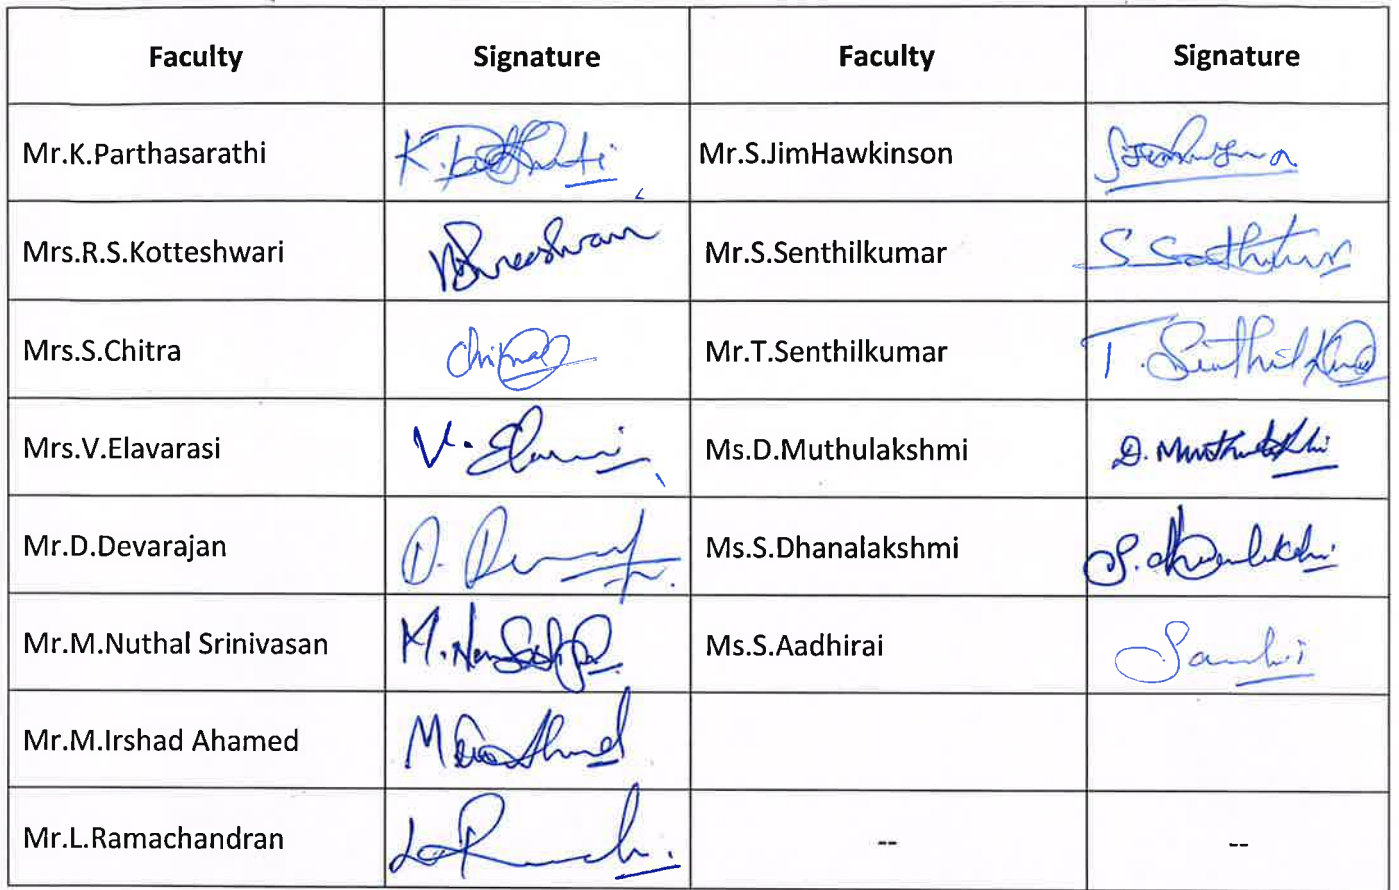 Faculty Signature Faculty Signature
Mr.K.Parthasarathi Mr.S.JimHawkinson
Mrs.R.S.Kotteshwari Mr.S.Senthilkumar S
Mrs.S.Chitra Mr.T.Senthilkumar T. Senthil
Mrs.V.Elavarasi V. Ms.D.Muthulakshmi D. Muthulakshmi
Mr.D.Devarajan D. Ms.S.Dhanalakshmi S. Dhanalakshmi
Mr.M.Nuthal Srinivasan M. Ms.S.Aadhirai
Mr.M.Irshad Ahamed M
Mr.L.Ramachandran -- --